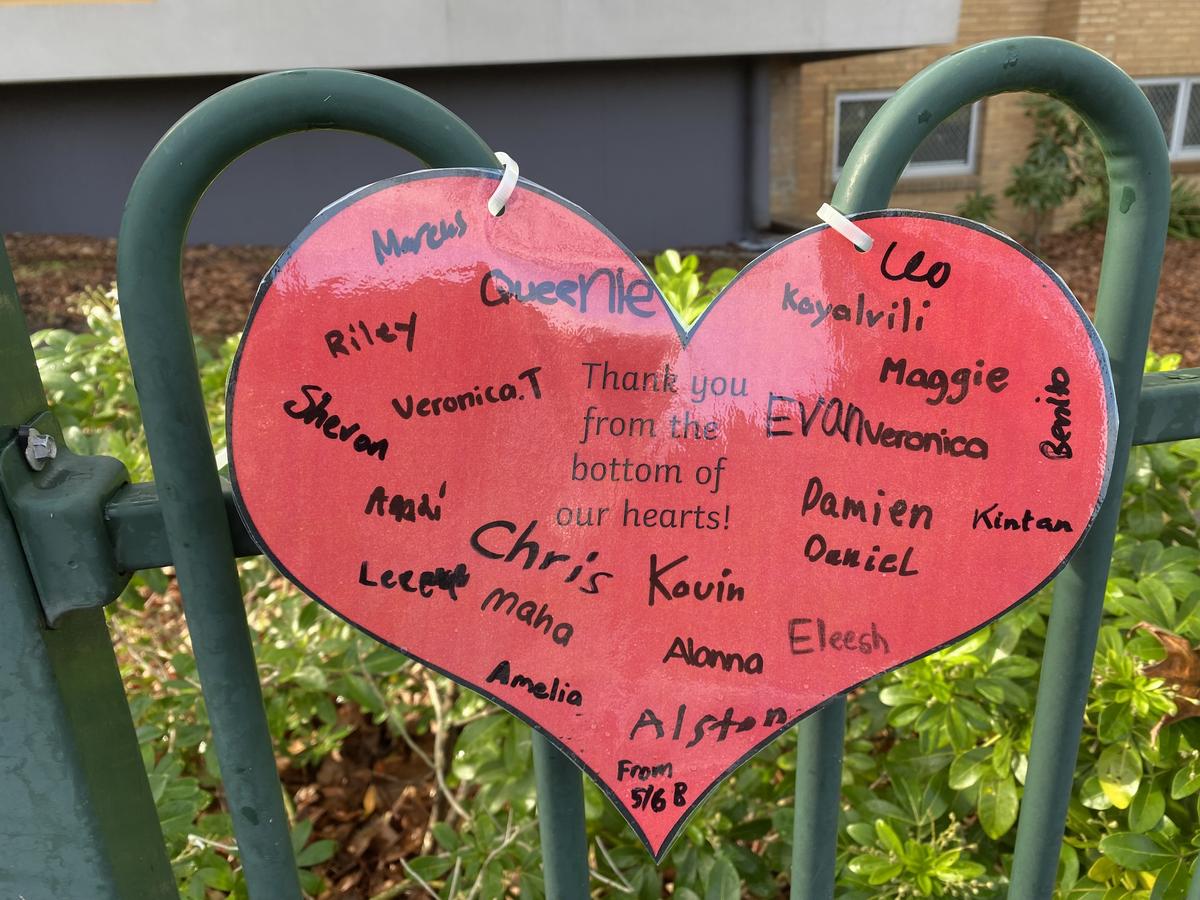 Marcus
Queenie
Leo
Kayalvili
Riley
Maggie
Benito
Sheron
Veronica.T
Thank you
from the
bottom of
our hearts!
Evan
Veronica
Andi
Damien
Kintan
Chris
Daniel
Maha
Kavin
Eleesh
Alanna
Amelia
Alston
From
5/6 B